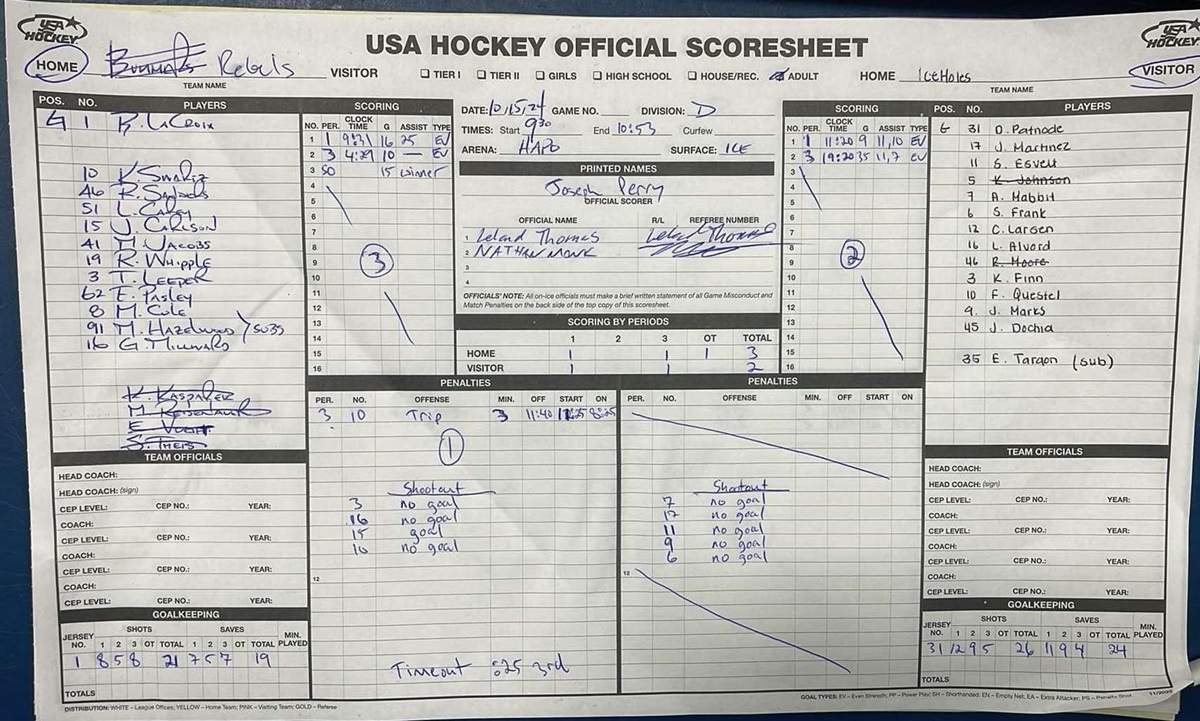 USA HOCKEY
USA HOCKEY OFFICIAL SCORESHEET
USA HOCKEY
HOME Rebels VISITOR ☐ TIER I ☐ TIER II ☐ GIRLS ☐ HIGH SCHOOL ☐ HOUSE/REC. ☑ ADULT HOME IceHoles VISITOR
TEAM NAME
TEAM NAME
POS. NO. PLAYERS
G 1 R. LaCroix
10 K. Swartz
46 R.
51 L. Carey
15 J. Carlson
41 M. Jacobs
19 R. Whipple
3 T. Leeper
62 E. Pasley
8 M. Cole
91 M. Hazelwood
16 G. Millward
subs
K. Kaspalez
E. Vogt
S. Theis
SCORING
NO. PER. CLOCK TIME G ASSIST TYPE
1 1 9:31 16 25 EV
2 3 4:29 10 — EV
3 SO 15 winner
4
5
6
7
8
9
10
11
12
13
14
15
16
3
DATE: 10/15/24 GAME NO. DIVISION: D
TIMES: Start 9:30 End 10:53 Curfew
ARENA: HAPO SURFACE: ICE
PRINTED NAMES
Joseph Perry
OFFICIAL SCORER
OFFICIAL NAME R/L REFEREE NUMBER
1 Leland Thomas Leland Thomas
2 NATHAN MONK
3
4
OFFICIALS' NOTE: All on-ice officials must make a brief written statement of all Game Misconduct and
Match Penalties on the back side of the top copy of this scoresheet.
SCORING BY PERIODS
1 2 3 OT TOTAL
HOME 1 1 1 3
VISITOR 1 1 2
SCORING
NO. PER. CLOCK TIME G ASSIST TYPE
1 1 11:20 9 11,10 EV
2 3 19:20 35 11,7 EV
3
4
5
6
7
8
9
10
11
12
13
14
15
16
2
POS. NO. PLAYERS
G 31 D. Patnode
17 J. Martinez
11 S. Esvelt
5 K. Johnson
7 A. Mabbit
6 S. Frank
12 C. Larsen
16 L. Alvord
46 R. Moore
3 K. Finn
10 F. Questel
9. J. Marks
45 J. Dochia
35 E. Targon (sub)
PENALTIES
PER. NO. OFFENSE MIN. OFF START ON
3 10 Trip 3 11:40 8:25
1
Shootout
3 no goal
16 no goal
15 goal
10 no goal
12
Timeout :25 3rd
PENALTIES
PER. NO. OFFENSE MIN. OFF START ON
Shootout
7 no goal
17 no goal
11 no goal
9 no goal
6 no goal
12
TEAM OFFICIALS
HEAD COACH:
HEAD COACH: (sign)
CEP LEVEL: CEP NO.: YEAR:
COACH:
CEP LEVEL: CEP NO.: YEAR:
COACH:
CEP LEVEL: CEP NO.: YEAR:
COACH:
CEP LEVEL: CEP NO.: YEAR:
GOALKEEPING
SHOTS SAVES
JERSEY NO. 1 2 3 OT TOTAL 1 2 3 OT TOTAL MIN. PLAYED
1 8 5 8 21 7 5 7 19
TOTALS
TEAM OFFICIALS
HEAD COACH:
HEAD COACH: (sign)
CEP LEVEL: CEP NO.: YEAR:
COACH:
CEP LEVEL: CEP NO.: YEAR:
COACH:
CEP LEVEL: CEP NO.: YEAR:
COACH:
CEP LEVEL: CEP NO.: YEAR:
GOALKEEPING
SHOTS SAVES
JERSEY NO. 1 2 3 OT TOTAL 1 2 3 OT TOTAL MIN. PLAYED
31 12 9 5 26 11 9 4 24
TOTALS
DISTRIBUTION: WHITE - League Officer, YELLOW - Home Team; PINK - Visiting Team; GOLD - Referee
GOAL TYPES: EV - Even Strength, PP - Power Play; SH - Shorthanded, EN - Empty Net; EA - Extra Attacker; PG - Penalty Shot